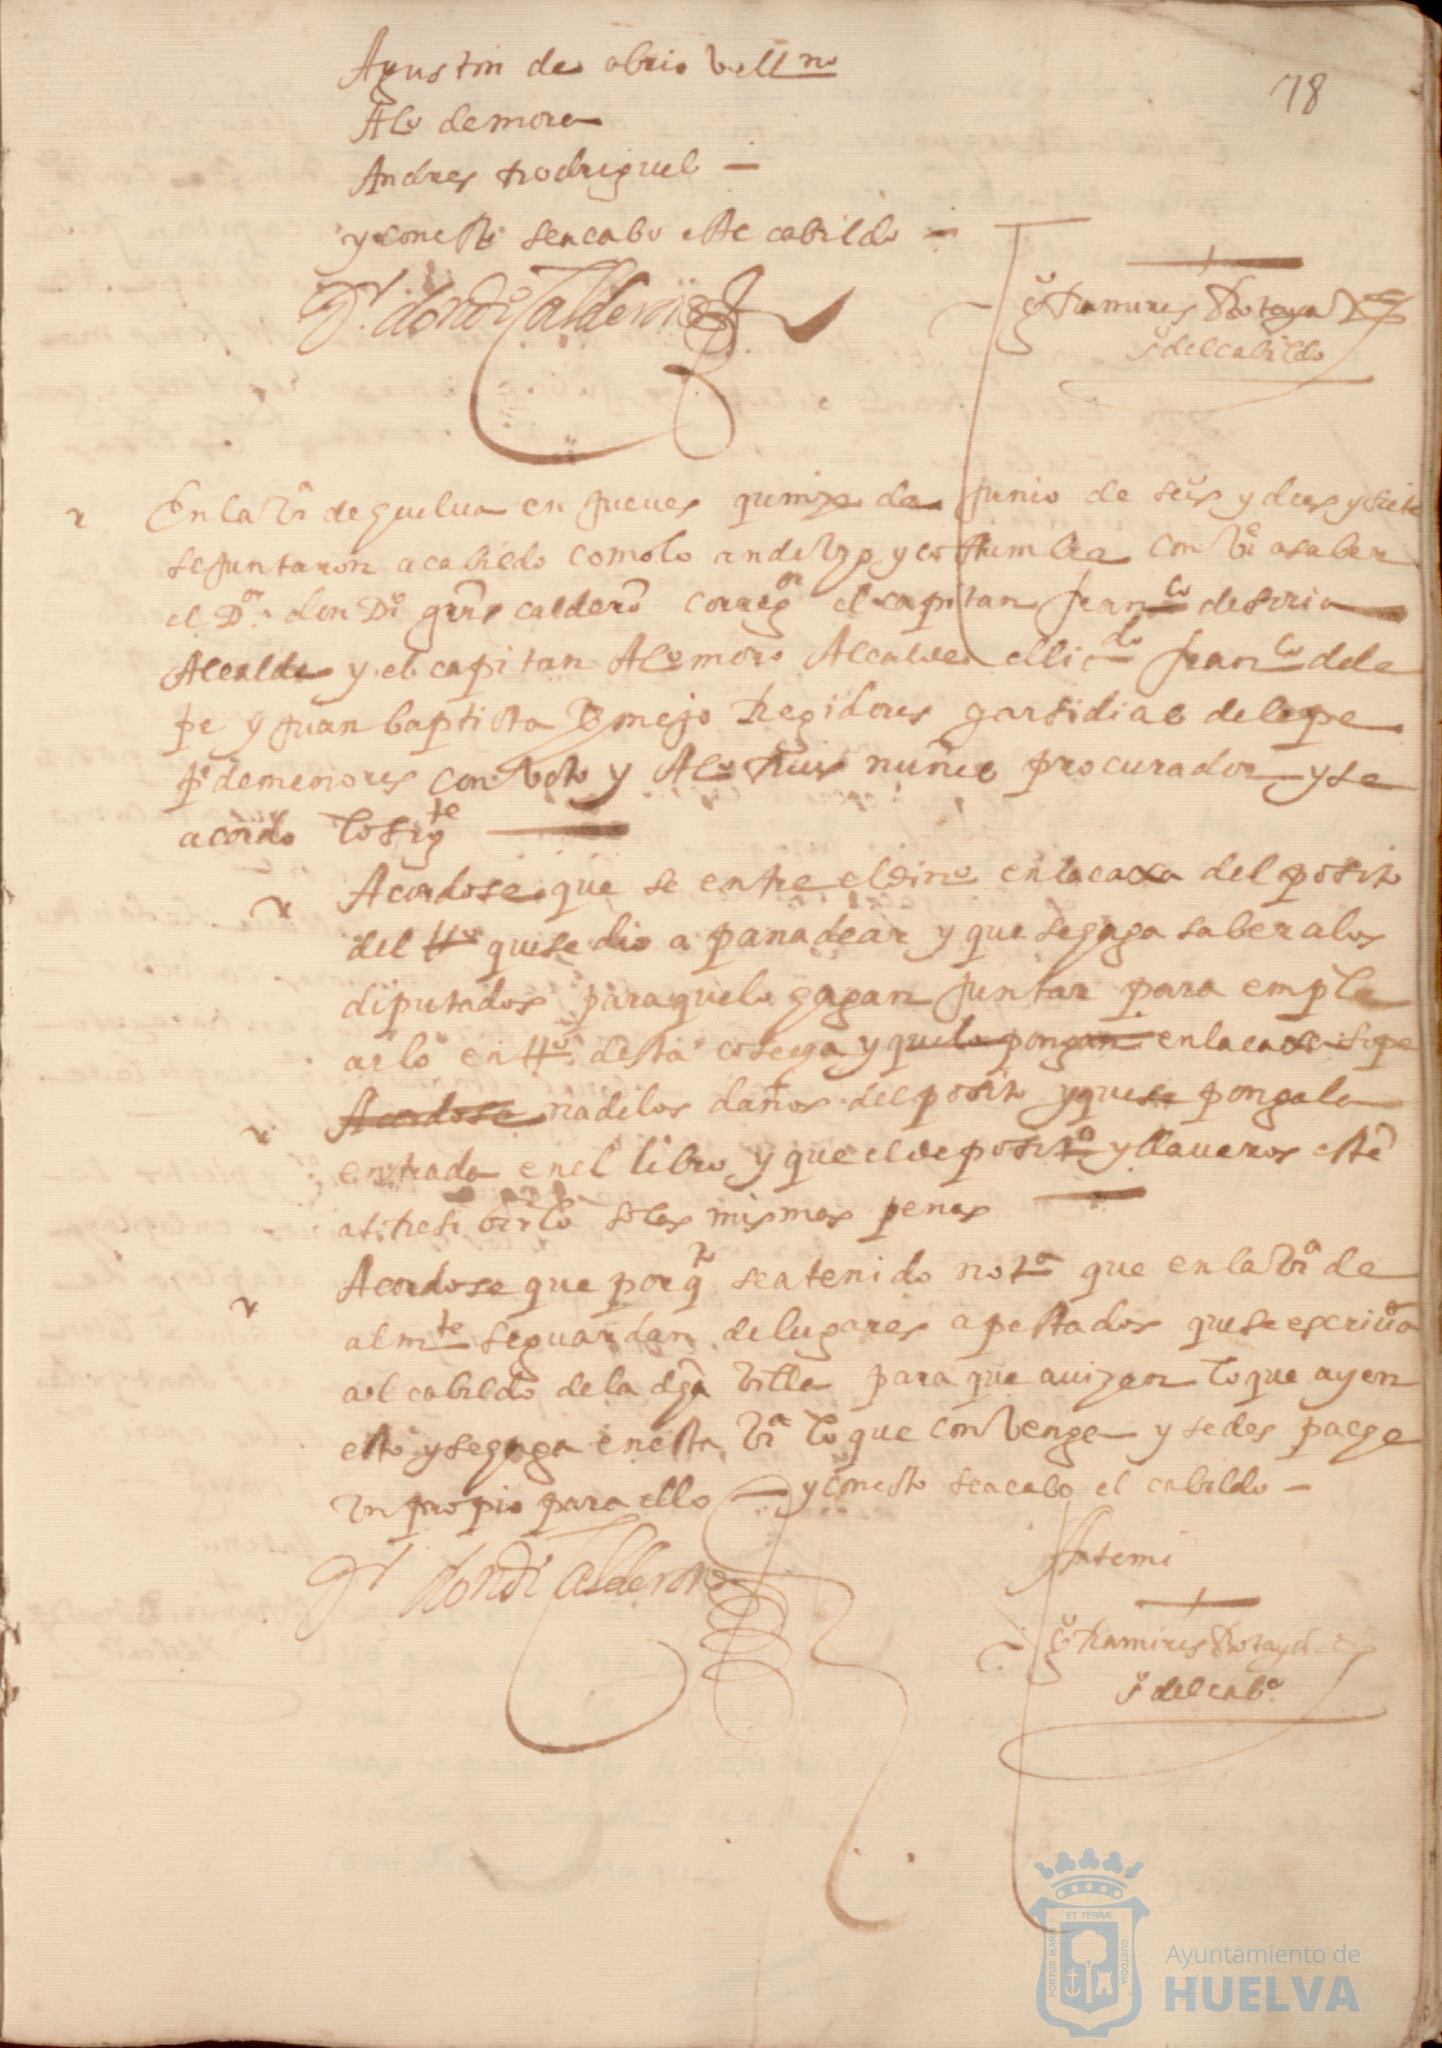 78
Agustin de obrio Vell no
Alo de mora
Andres Rodriguez
y con esto se acabo este cabildo
Dr don dio Calderon
Ramires
so del cabildo
En la Va de guelua en jueues quinze de Junio de seis y dies y siete
se juntaron a cabildo como lo an de uzo y costumbre con Ve a saber
el Dor don Dio calderō corregor el capitan franco de soria
Alcalde y el capitan Alo moro Alcaldes el licdo franco de le
pe y Juan baptista Bmejo Regidores garsidias de lepe
pe de menores con Voto y Alo Ruis nuñes procurador y se
acordo lo sigte
Acordose que se entre el dino en la caxa del posito
del tto que se dio a panadear y que se gaga saber a los
diputados para que lo gagan juntar para emple
arlo en tto desta cosega y que lo pongan en la caxa so pe
Acordose na de los daños del posito y que se ponga la
entrada en el libro y que el deposito y llaueros estē
a resibirlo so las mismas penas
Acordose que por q to se a tenido nota que en la Va de
almte se guardan de lugares apestados que se escriua
al cabildo de la dga Villa para que auizen lo que ay en
esto y se gaga en esta Va lo que conVenga y se despacge
Vn propio para ello y con esto se acabo el cabildo
Dr don di Calderon
Ante mi
Ramires
so del cabo
PORTUS MARIS
ET TERRÆ
CUSTODIA
Ayuntamiento de
HUELVA